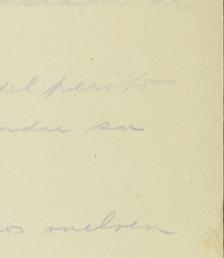 del perito
ndar su
os vuelven